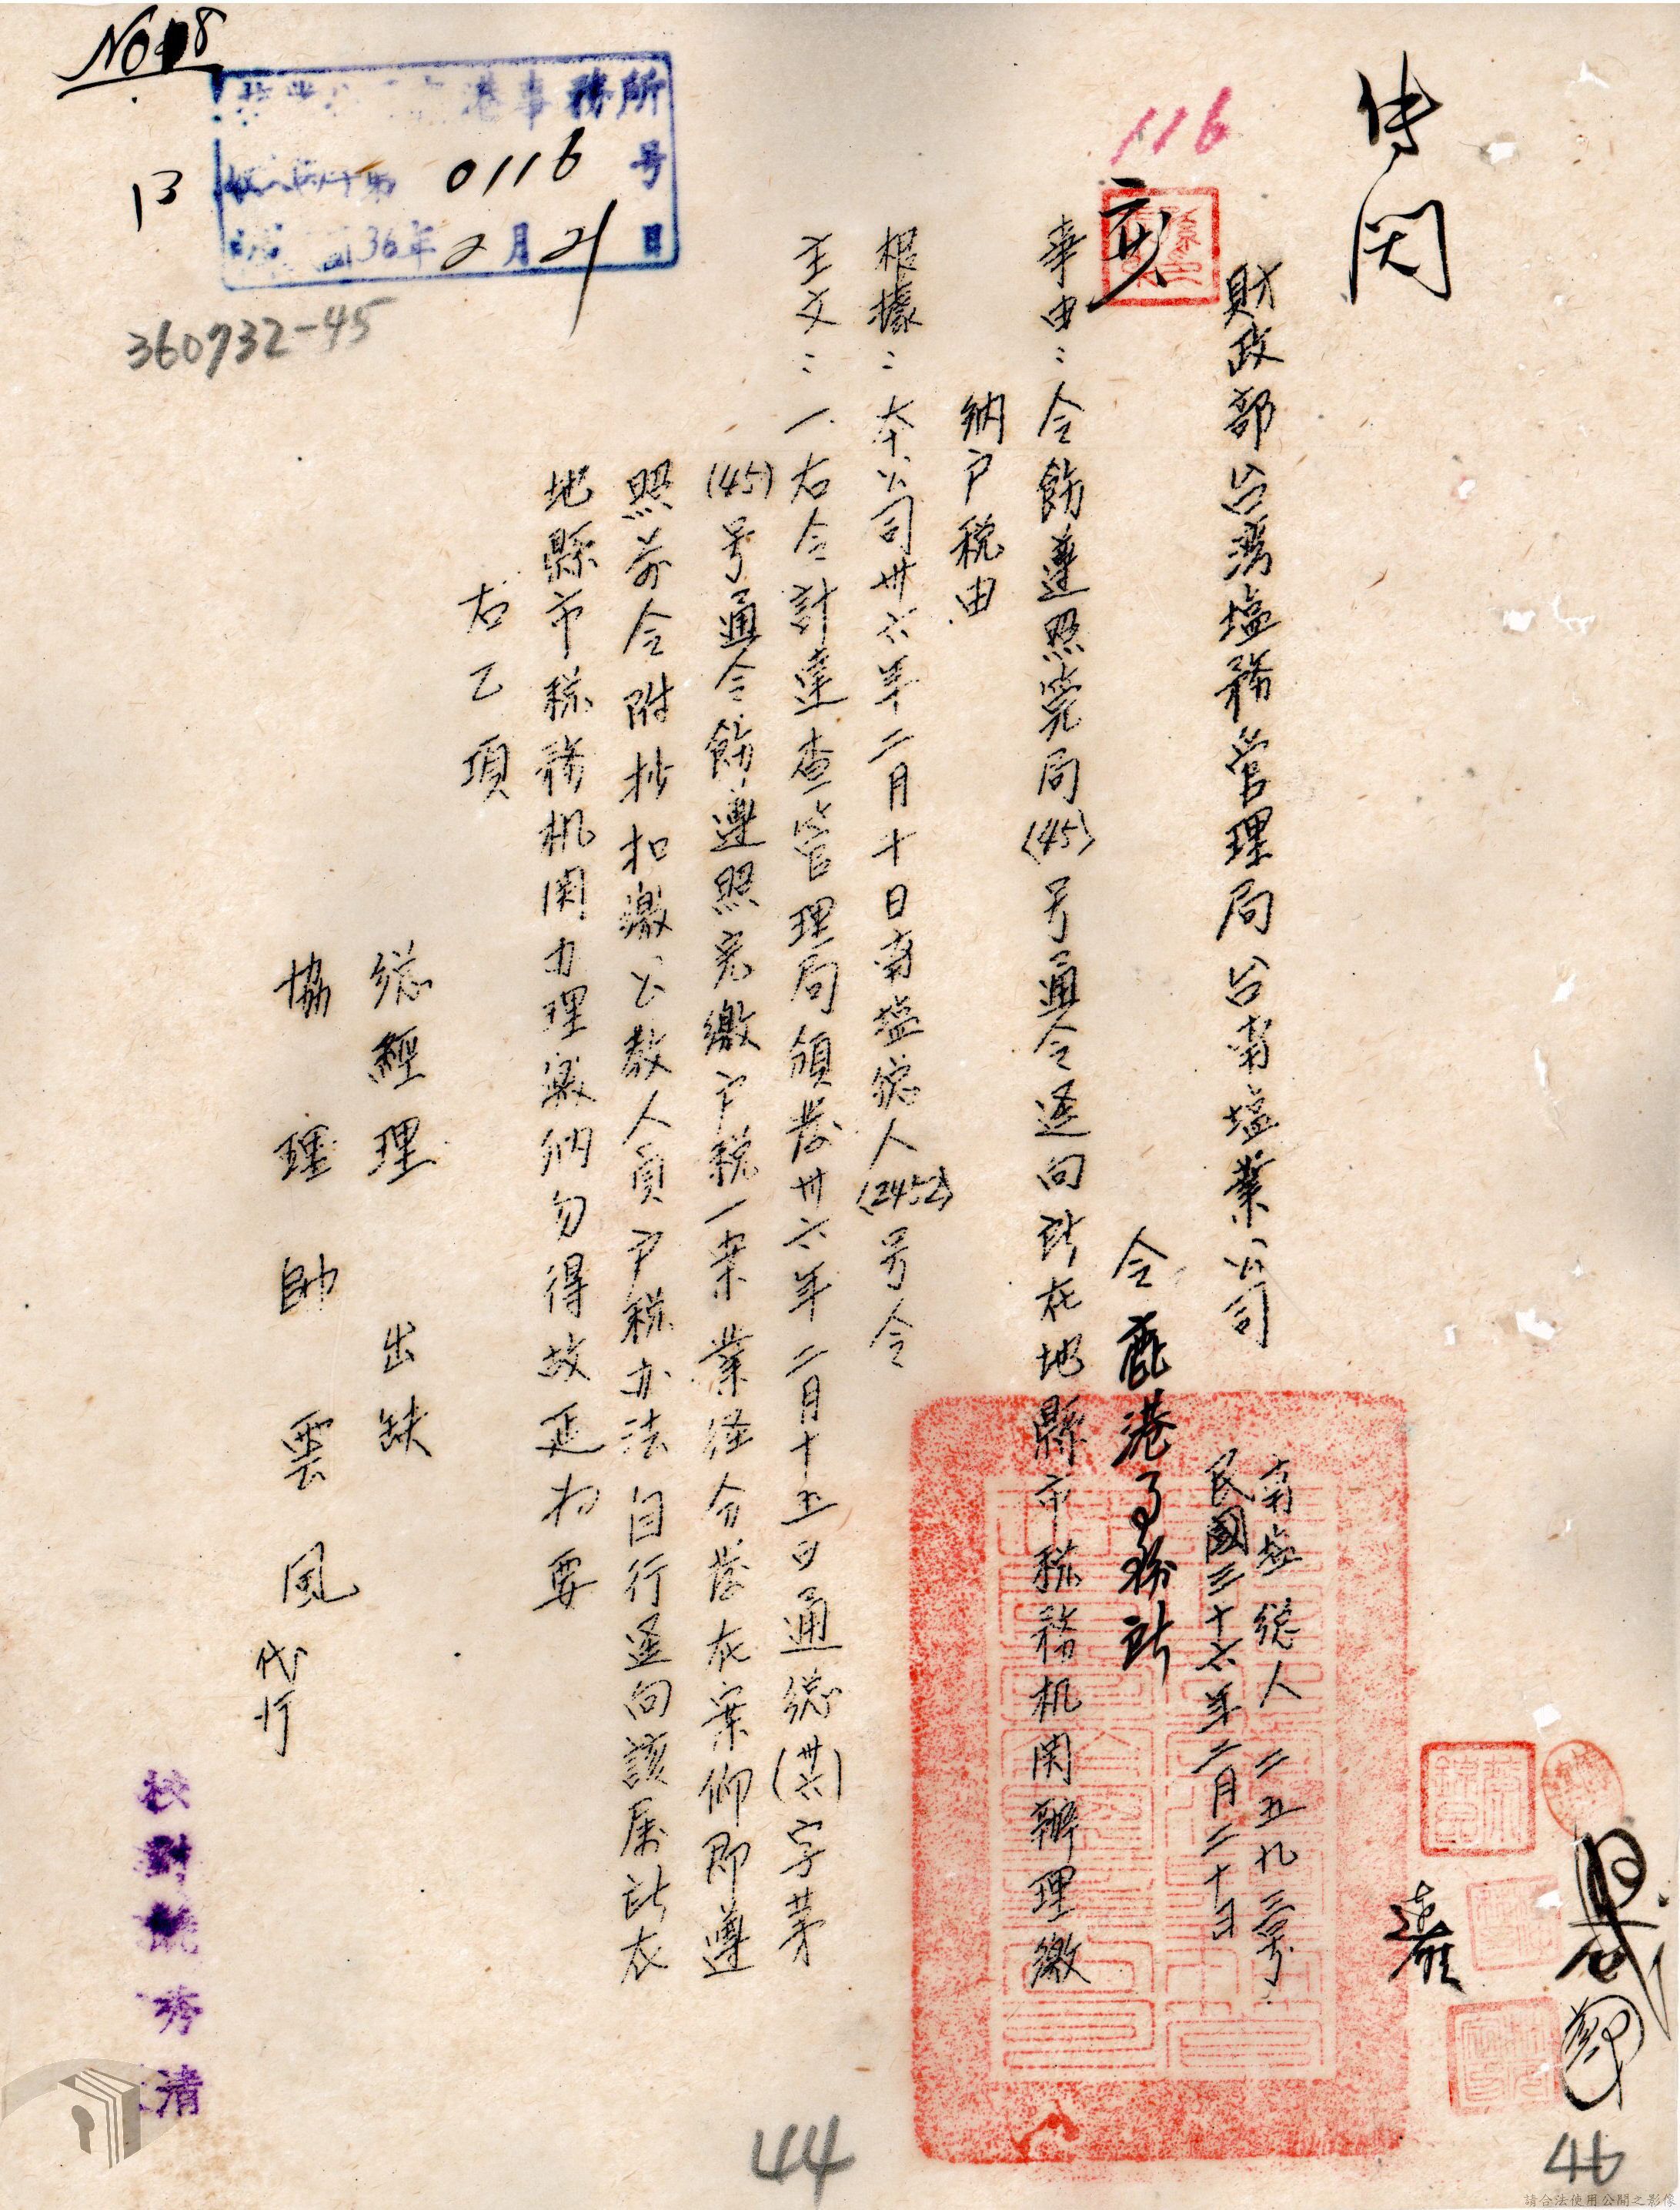 傳閱
116
財政部台湾塩務管理局台南塩業公司
南塩總人二五九三号
民國三十六年二月二十日
令鹿港事務所
事由：令飭遵照管局(45)号通令逕向所在地縣市稅務机関辦理繳
納户税由
根據：本公司卅六年二月十日南塩總人(2452)号令
主文：一、右令計達查管理局頒發卅六年二月十五日通總(卅六)字苐
(45)号通令飭遵照完繳户税一案業経分發在案仰即遵
照前令附抄扣繳公教人員户税办法自行逕向該屬所在
地縣市稅務机関办理繳納勿得故延為要
右乙項
總經理 出缺
協理 帥雲風 代行
校對 秀清
No 18
港事務所
0116号
36年2月21日
13
360732-45
44
46
請合法使用公開之影像